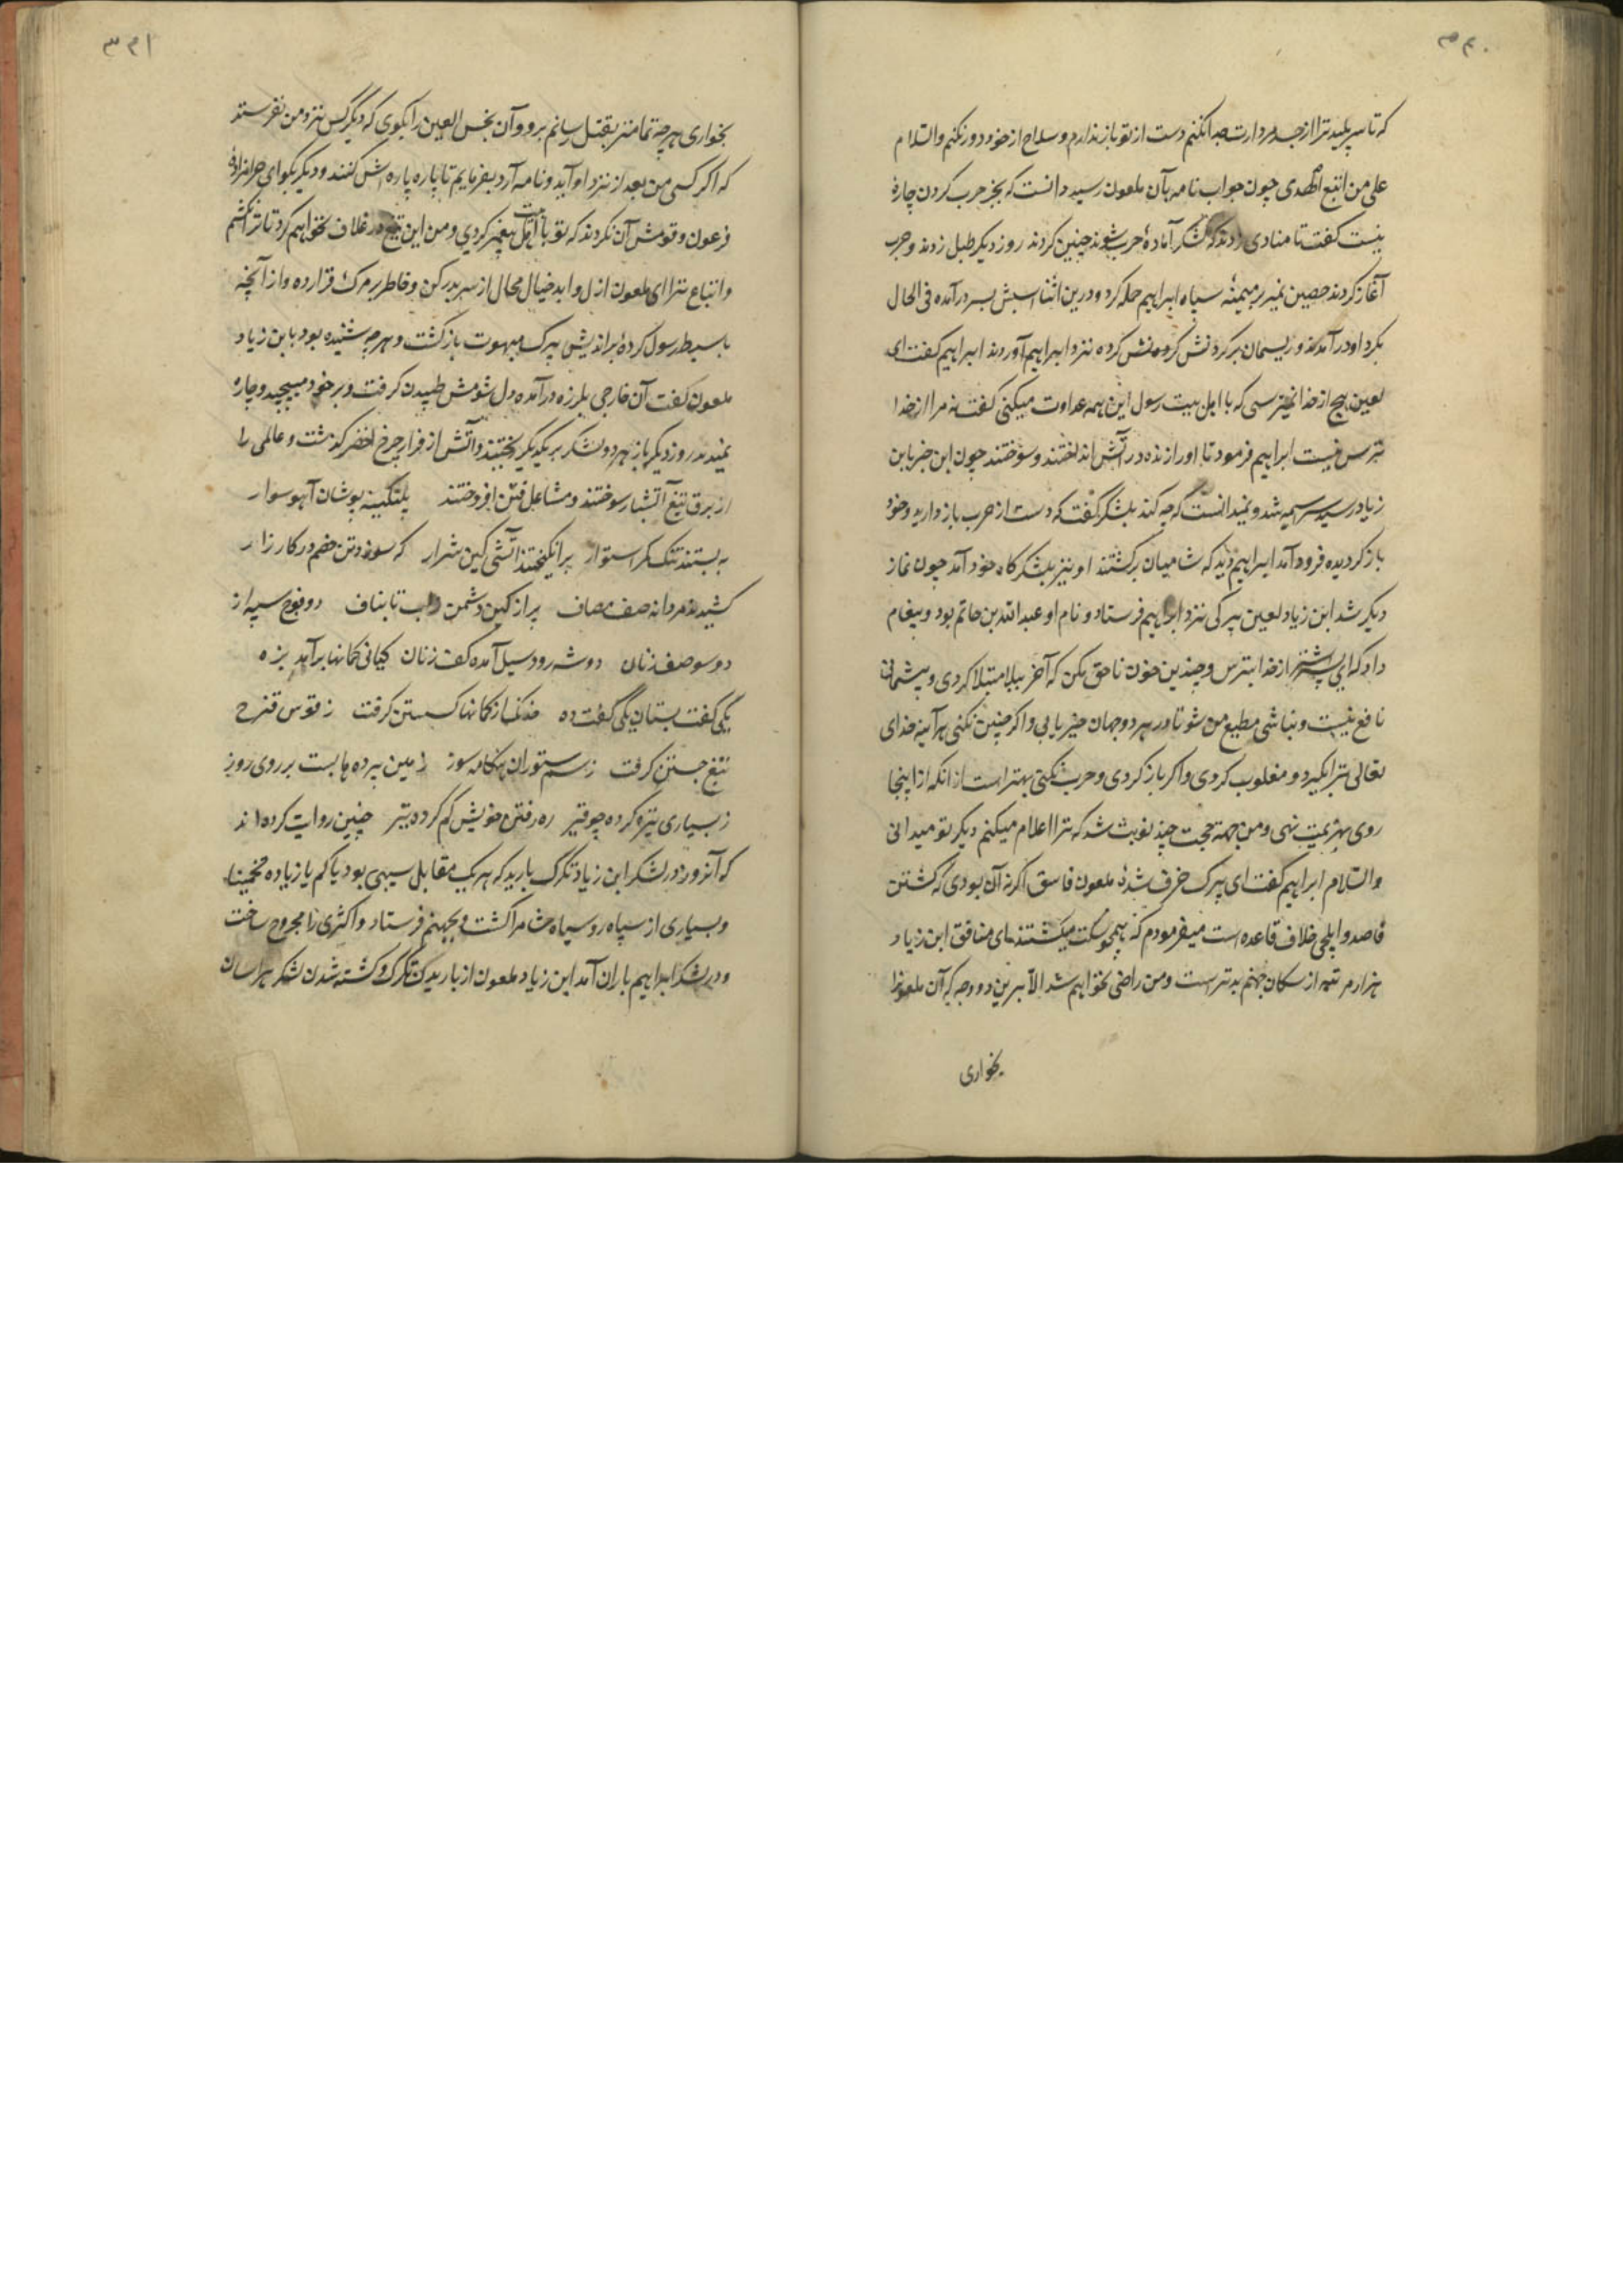 ۳۶۰
که تا سر پلید ترا از جسد مردارت جدا نکنم دست از تو باز ندارم و سلاح از خود دور نکنم والسلام
علی من اتبع الهدی چون جواب نامه بآن ملعون رسید دانست که بجز حرب کردن چارهٔ
نیست گفت تا منادی زدند که لشکر آمادهٔ حرب شوند چنین کردند روز دیکر طبل زدند و حرب
آغاز کردند حصین نمیر بر میمنهٔ سپاه ابراهیم حمله کرد و درین اثنا اسبش بسر درآمده فی الحال
بکرد او درآمدند و ریسمان بر کردنش کرده نزد ابراهیم آوردند ابراهیم کفت ای
لعین هیچ از خدا نمیترسی که با اهل بیت رسول این همه عداوت میکنی کفت نه مرا از خدا
ترس نیست ابراهیم فرمود تا او را زنده در آتش انداختند و سوختند چون این خبر بابن
زیاد رسید سراسیمه شد و نمیدانست که چه کند بلشکر کفت که دست از حرب باز دارید و خود
باز کردیده فرود آمد ابراهیم دید که شامیان برکشتند او نیز بلشکرکاه خود آمد چون نماز
دیکر شد ابن زیاد لعین پیرکی نزد ابراهیم فرستاد و نام او عبدالله بن حاتم بود و پیغام
داد که ای پسر اشتر از خدا بترس و چندین خون ناحق مکن که آخر ببلا مبتلا کردی و پشیمانی
نافع نیست و نباشی مطیع من شو تا در هر دو جهان خیر یابی و اکر چنین نکنی هرآینه خدای
تعالی ترا بکیرد و مغلوب کردی و اکر باز کردی و حرب نکنی بهتر است از انکه از اینجا
روی بهزیمت نهی و من جهة حجت چند نوبت شد که ترا اعلام میکنم دیکر تو میدانی
والسلام ابراهیم کفت ای پیرک خرف شدهٔ ملعون فاسق اکر نه آن بودی که کشتن
قاصد و ایلچی خلاف قاعده است میفرمودم که همچو سکت میکشتند ای منافق ابن زیاد
هزار مرتبه از سکان جهنم بدتر است و من راضی نخواهم شد الا برین دو وجه که آن ملعونرا
بخواری
۳۶۱
بخواری هر چه تمامتر بقتل رسانم برو و آن نجس العین را بکوی که دیکر کس نزد من نفرستد
که اکر کسی من بعد از نزد او آید و نامه آرد بفرمایم تا پاره پاره اش کنند و دیکر بکو ای حرامزاده
فرعون و قومش آن نکردند که تو با اهل بیت پیغمبر کردی و من این تیغ در غلاف نخواهم کرد تا ترا نکشم
و اتباع ترا ای ملعون ازل و ابد خیال محال از سر بدر کن و خاطر بر مرک قرار ده و از آنچه
با سبط رسول کردهٔ براندیش پیرک مبهوت بازکشت و هر چه شنیده بود بابن زیاد
ملعون کفت آن خارجی بلرزه درآمده دل شومش طپیدن کرفت و بر خود میپیچید و چاره
نمیدید روز دیکر باز هر دو لشکر بر یکدیکر ریختند و آتش از فراز چرخ اخضر کذشت و عالمی را
از برق تیغ آتشبار سوختند و مشاعل فتن افروختند پلنکینه پوشان آهو سوار
به بستند تنک کمر استوار برانکیختند آتشی کین شرار که سوزد تن خصم در کارزار
کشیدند مردانه صف مصاف پر از کین دشمن ز لب تا بناف دو فوج سپه از
دو سو صف زنان دو شه رود سیل آمده کف زنان کیانی کمانها برآمد بزه
یکی کفت بستان یکی کفت ده خدنک از کمانها کسستن کرفت ز قوس قزح
تیغ جستن کرفت ز سم ستوران هنکامه سوز زمین پرده ها بست بر روی روز
ز بسیاری تیره کرده چو قیر ره رفتن خویش کم کرده تیر چنین روایت کرده اند
که آنروز در لشکر ابن زیاد تکرک بارید که هر یک مقابل سیبی بود یا کم یا زیاده تخمینا
و بسیاری از سپاه روسیاه شام را کشت و بجهنم فرستاد و اکثری را مجروح ساخت
و در لشکر ابراهیم باران آمد ابن زیاد ملعون از باریدن تکرک و کشته شدن لشکر هراسان